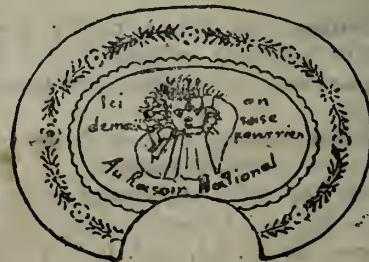 Ici on
demai rase
pourrien
Au Rasoir National